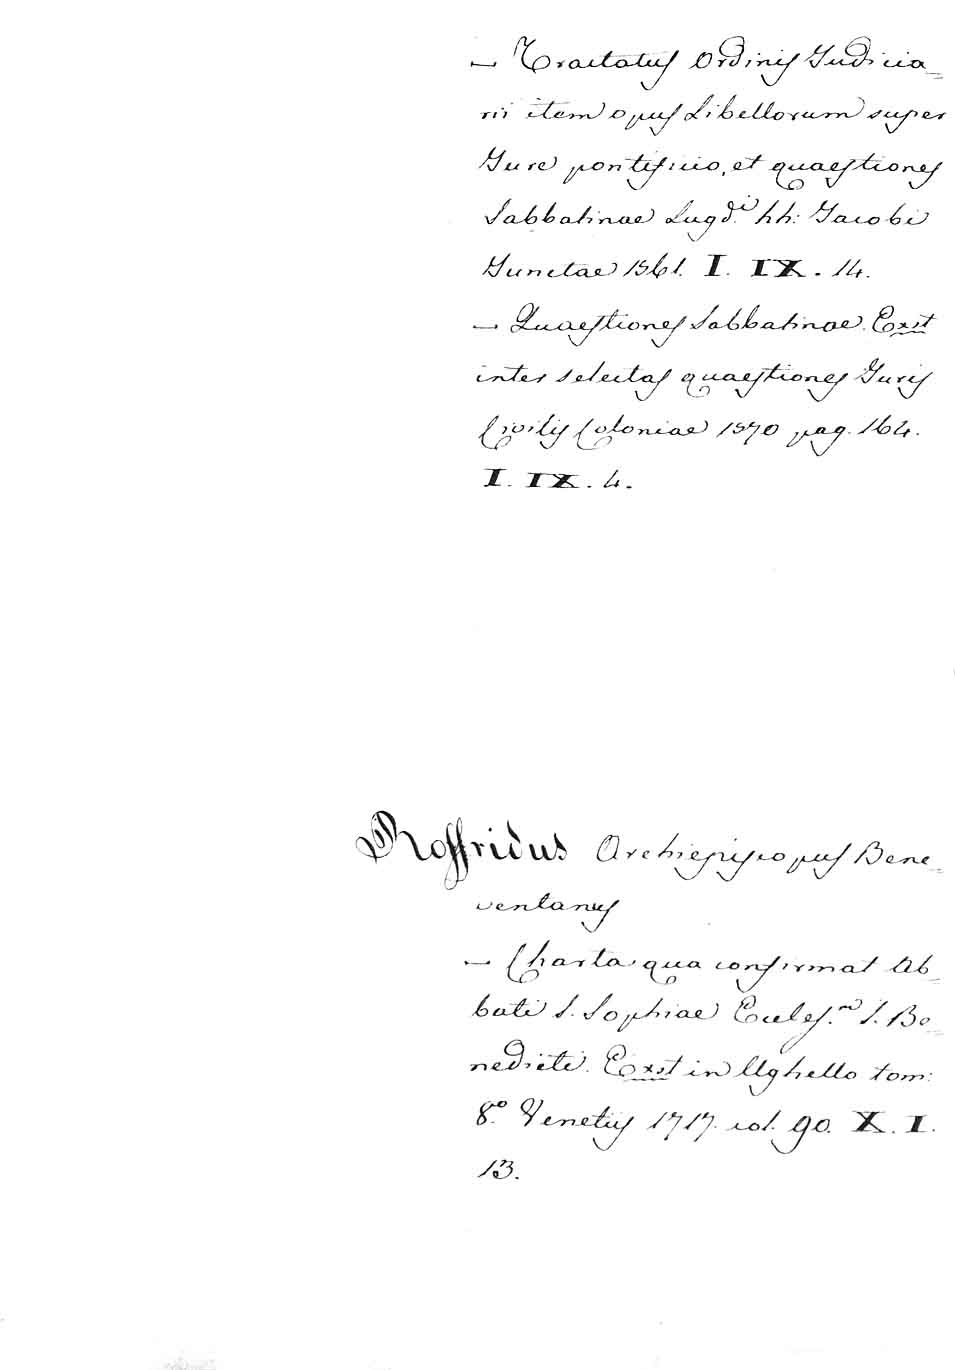 — Tractatus Ordinis Judicia=
rii item opus Libellorum super
Jure pontificio, et quaestiones
Sabbatinae Lugd.i hh: Jacobi
Junctae 1561. I. IX. 14.
— Quaestiones Sabbatinae. Exst
inter selectas quaestiones Juris
Civilis Coloniae 1570 pag. 164.
I. IX. 4.
Roffridus Archiepiscopus Bene=
ventanus
— Charta qua confirmat Ab=
bati S. Sophiae Eccles.m S. Be=
nedicti. Exst in Ughello tom:
8.o Venetiis 1717. col. 90. X. I.
13.